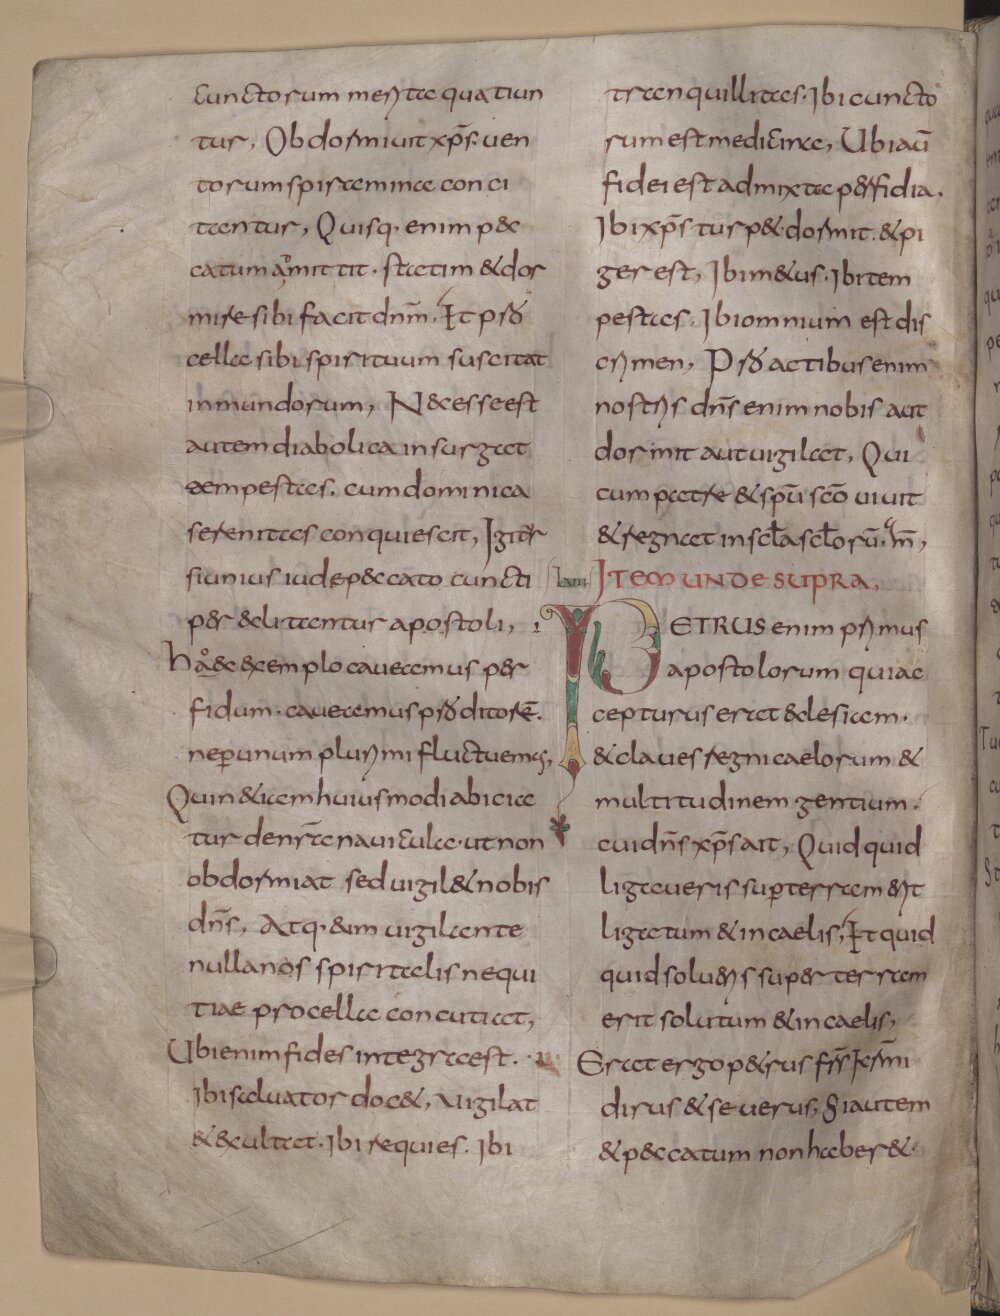 cunctorum merita quatiun
tur, Ob dormiuit xp̄s. uen
torum spiramina conci
tantur, Quisq. enim pec
catum amittit. statim & dor
mire sibi facit dn̄m. Et pro
cellas sibi spirituum suscitat
inmundorum, Necesse est
autem diabolica insurgat
tempestas. cum dominica
serenitas conquiescit, Igitur
si unius iude peccato cuncti
per &clitantur apostoli,
hoc & exemplo caueamus per
fidum. caueamus proditorē.
ne per unum plurimi fluctuemus,
Quin &iam huiusmodi abicia
tur de nr̄a nauicula. ut non
obdormiat sed uigil& nobis
dn̄s, Atq. &im uigilante
nulla nos spiritalis nequi
tiae procella concutiat,
Ubi enim fides integra est.
Ibi saluator doc&, uigilat
& excultat. Ibi requies. Ibi
tranquillitas. Ibi cuncto
rum est medicina, Ubi aū
fidei est admixta perfidia.
Ibi xp̄s turp& dormit. & pi
ger est, Ibi m&us. Ibi tem
pestas. Ibi omnium est dis
crimen, Pro actibus enim
nostris dn̄s enim nobis aut
dormit aut uigilat, Qui
cum patre & sp̄u scō uiuit
& regnat in sc̄la sc̄lorū. am̄,
ITEM UNDE SUPRA.
PETRUS enim primus
apostolorum quia ac
cepturus erat &clesiam.
& claues regni caelorum &
multitudinem gentium.
cui dn̄s xp̄s ait, Quid quid
ligaueris super terram erit
ligatum & in caelis, Et quid
quid solueris super terram
erit solutum & in caelis,
Erat ergo p&rus frs̄ karīmi
dirus & seuerus, Si autem
& peccatum non haber&.